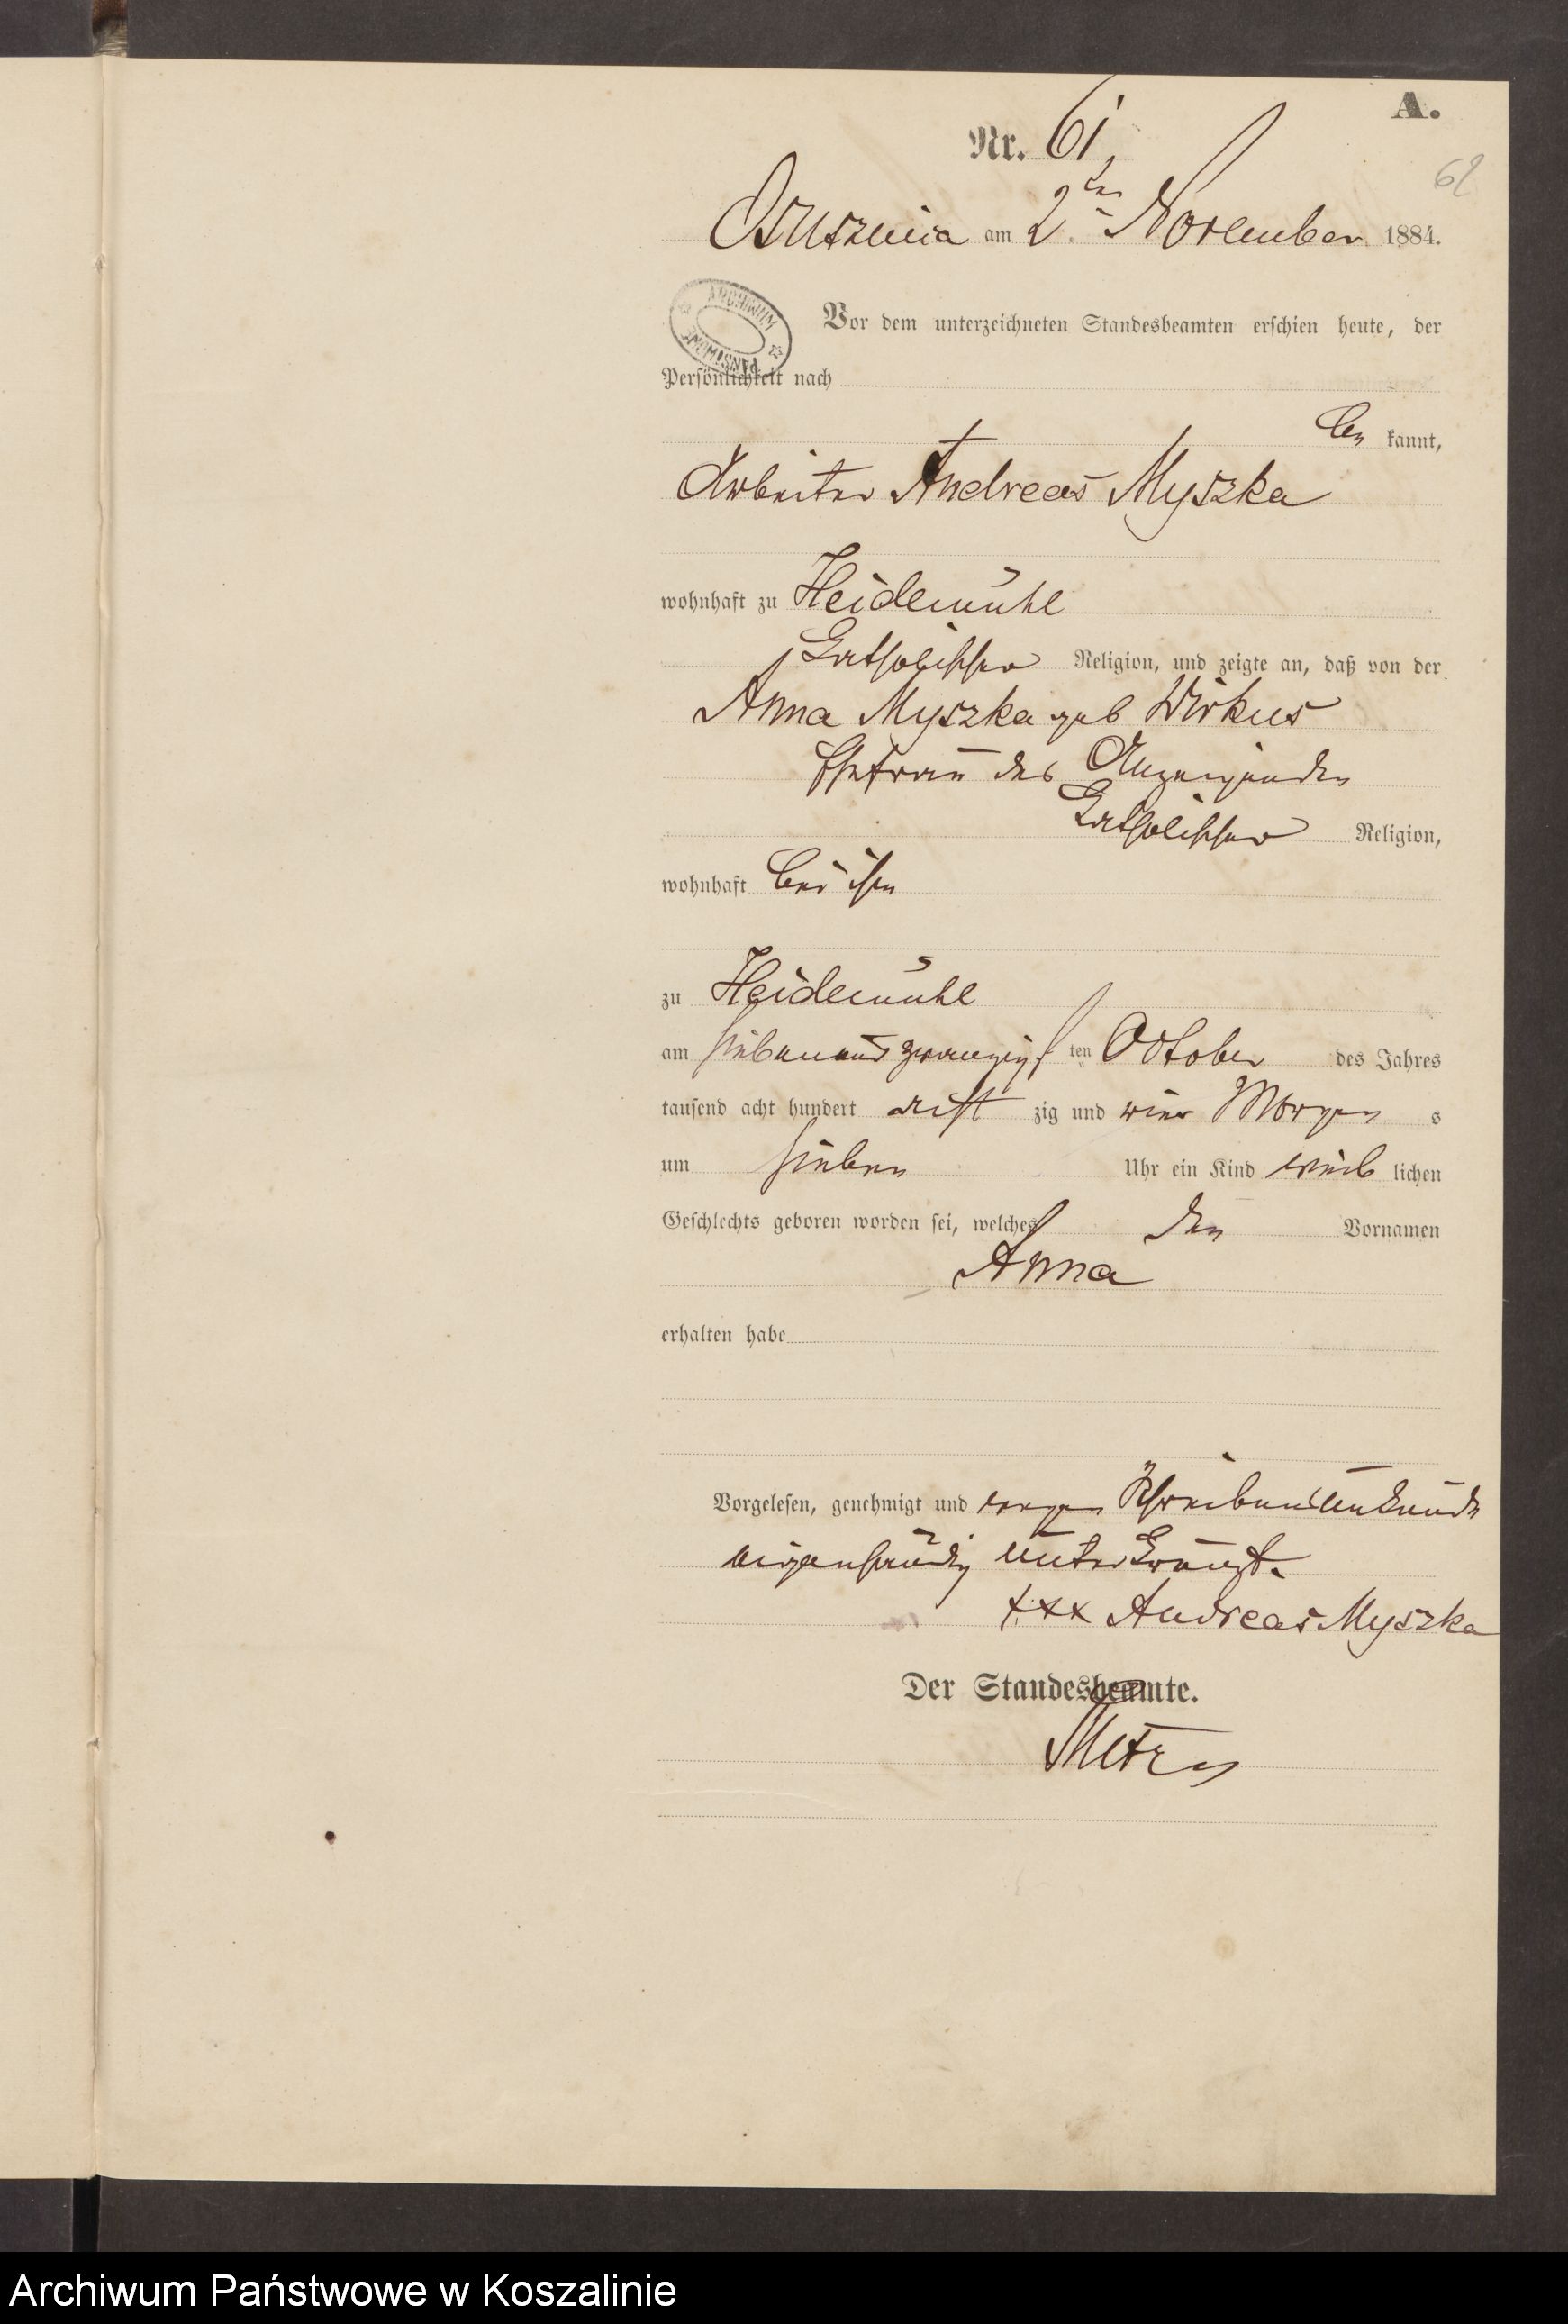 A.
Nr. 61.
62
Osusznica am 2ten November 1884.
ARCHIWUM PAŃSTWOWE
Vor dem unterzeichneten Standesbeamten erschien heute, der
Persönlichkeit nach
be kannt,
Arbeiter Andreas Myszka
wohnhaft zu Heidemühl
katholischer Religion, und zeigte an, daß von der
Anna Myszka geb Wirkus
Ehefrau des Anzeigenden
katholischer Religion,
wohnhaft bei ihm
zu Heidemühl
am siebenundzwanzigsten October des Jahres
tausend acht hundert acht zig und vier Morgen s
um sieben Uhr ein Kind weib lichen
Geschlechts geboren worden sei, welches den Vornamen
Anna
erhalten habe
Vorgelesen, genehmigt und wegen Schreibensunkunde
eigenhändig unterkreuzt.
+++ Andreas Myszka
Der Standesbeamte.
Archiwum Państwowe w Koszalinie